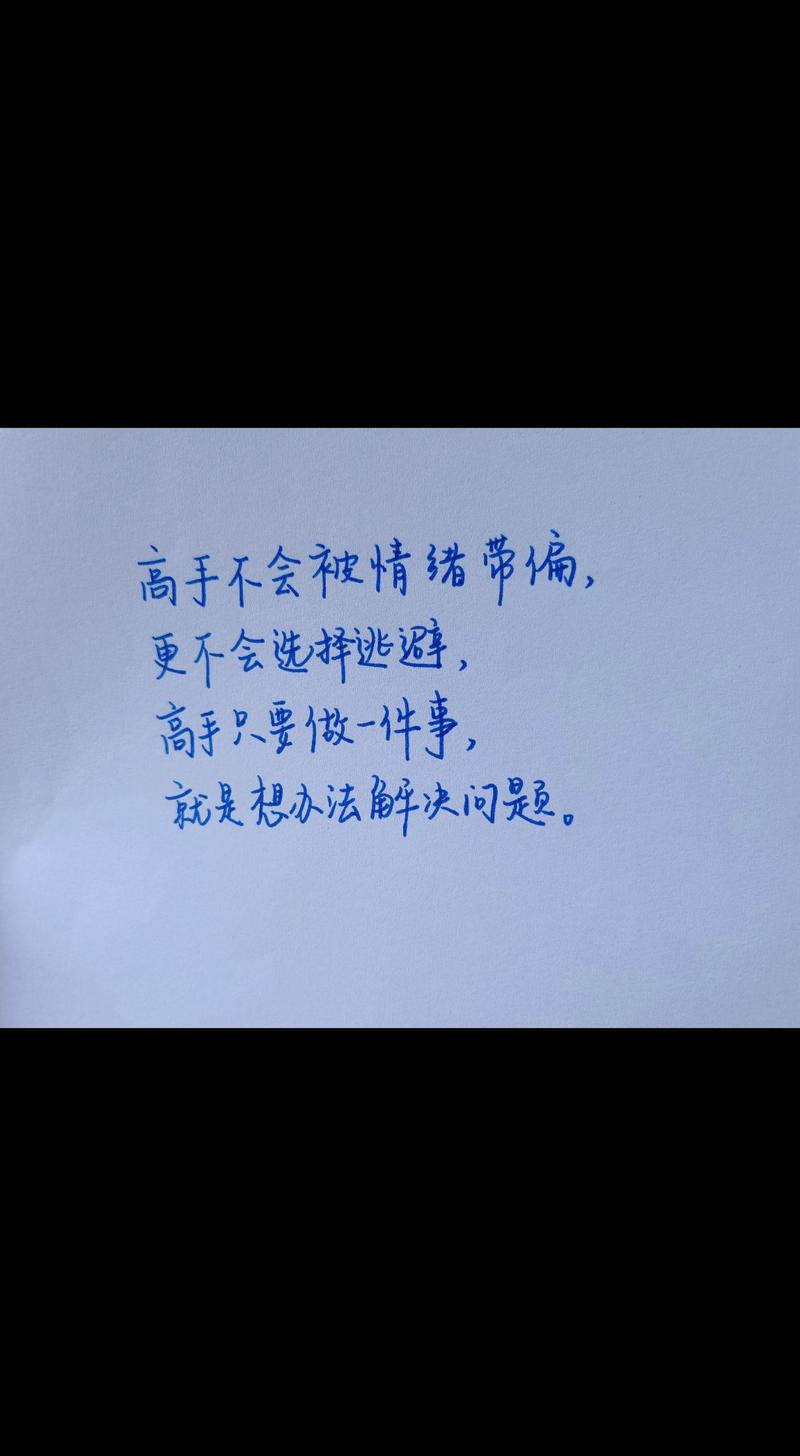 高手不会被情绪带偏,
更不会选择逃避,
高手只要做一件事,
就是想办法解决问题。